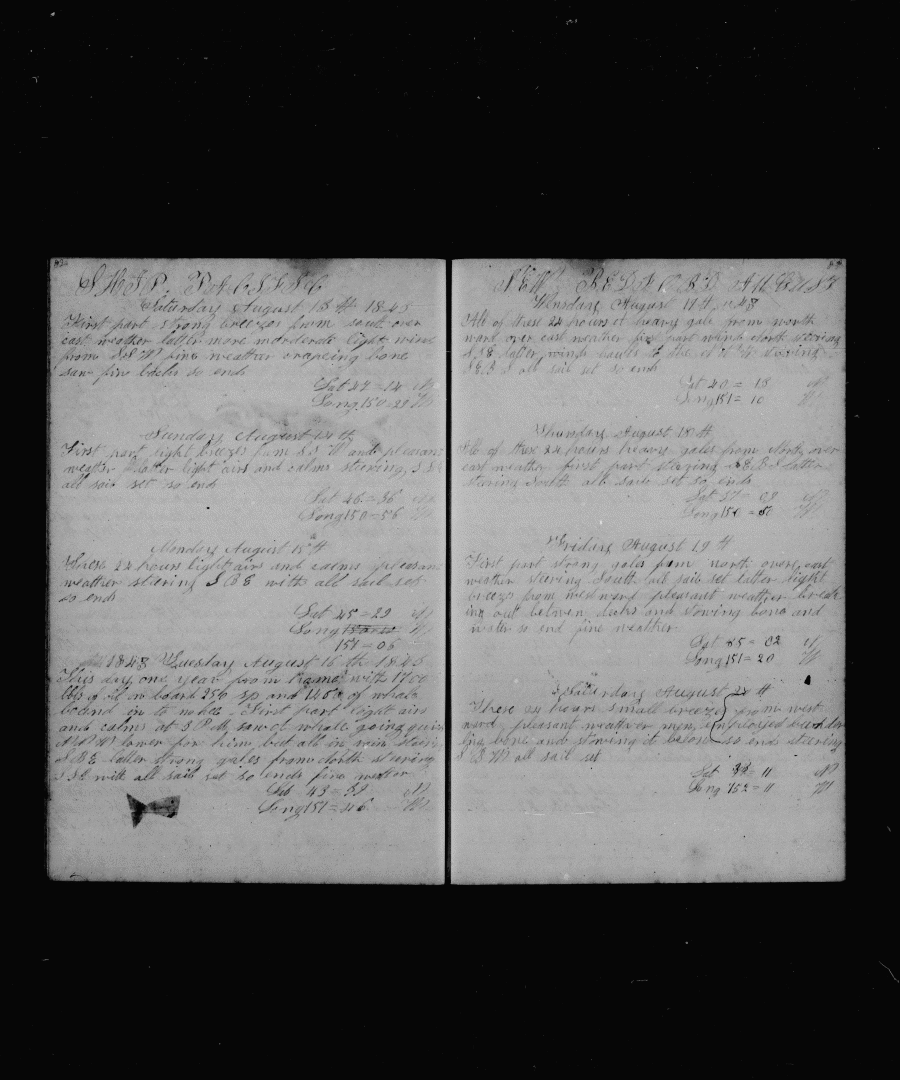 SHIP PACIFIC
Saturday August 13th 1848
First part strong breezes from south over
cast weather latter more morderate light wind
from SSW fine weather scrapeing bone
saw fin backs so ends
Lat 47 = 14 N
Long 150 = 29 W
Sunday August 14th
First part light breezes from SSW and pleasant
weather latter light airs and calms steering
all sail set so ends
Lat 46 = 36 N
Long 150 = 56 W
Monday August 15th
These 24 hours light airs and calms pleasant
weather stearing S B E with all sail set
so ends
Lat 45 = 29 N
Long W
151 = 06
1848 Tuesday August 16th 1848
This day one year from home with 1700
bbls of oil on board 250 sp and of whale
bound in to First part light airs
and calms at 3 PM saw whale going quic
lower for him but all in vain steering
S B E latter strong gales from north steering
with all sail set so ends fine weather
Lat 43 = 59 N
Long 151 = 46 W
NEW BEDFORD AUGUST
Wensday August 17th 48
All of these 24 hours heavy gale from north
ward over cast weather first part wind North steering
latter wind hauls to the
all sail set so ends
Lat 40 = 18 N
Long 151 = 10 W
Thursday August 18th
All of these 24 hours heavy gales from North over
cast weather first part steering latter
steering South all sail set so ends
Lat 37 = 09 N
Long W
Friday August 19th
First part strong gales from north overe cast
weather steering South all sail set latter light
breezes from westward pleasant weather break
ing out between decks and stowing bone and
water so end fine weather
Lat 35 = 02 N
Long 151 = 20 W
Saturday August 20th
These 24 hours small breezes from west
ward pleasant weather men employed
ling bone and stowing it below so ends steering
all sail set
Lat 33 = 11 N
Long 152 = 11 W